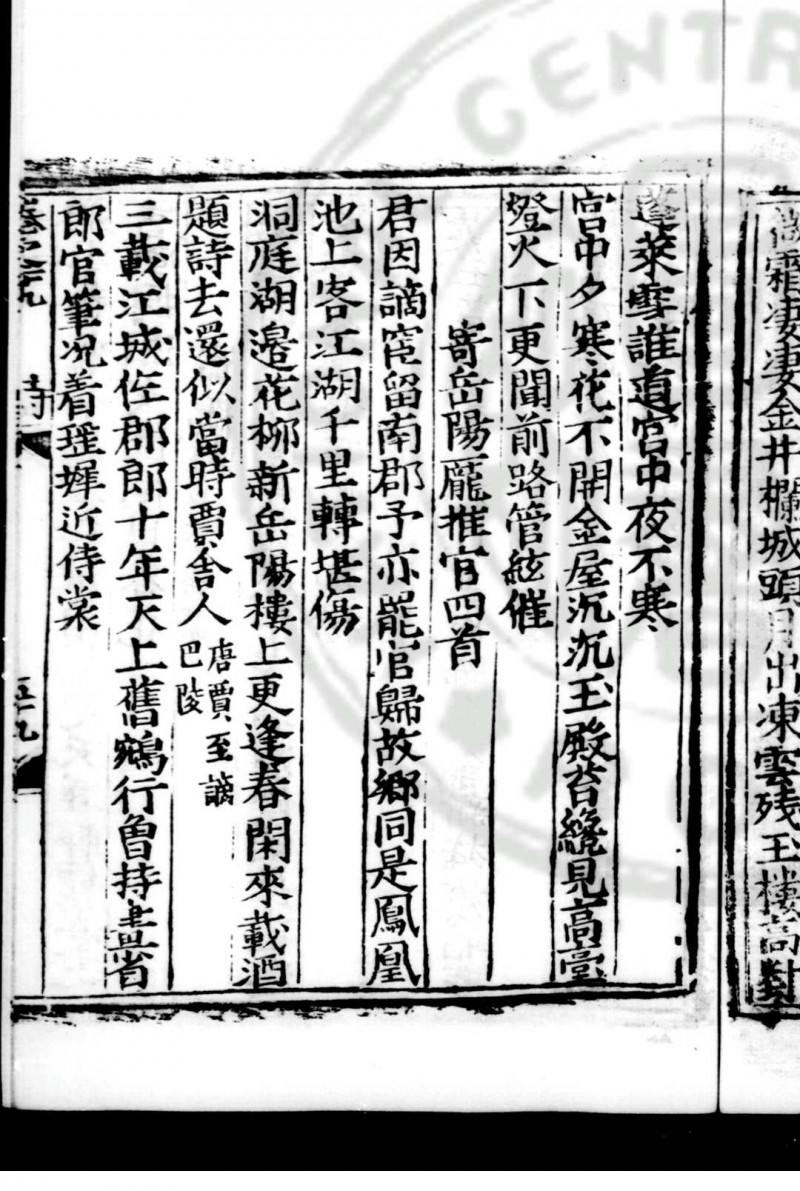 霜凄凄金井欄城頭月出凍雲残玉樓高對
蓬萊雪誰道宮中夜不寒
宮中夕寒花不開金屋沉沉玉殿苔纔見高堂
燈火下更聞前路管絃催
寄岳陽龐推官四首
君因謫宦留南郡予亦罷官歸故鄉同是鳳凰
池上客江湖千里轉堪傷
洞庭湖邊花柳新岳陽樓上更逢春閑來載酒
題詩去還似當時賈舍人唐賈至謫巴陵
三載江城佐郡郎十年天上舊鵷行曾持畫省
郎官筆况着璀墀近侍裳
詩
五十九
CENTRA